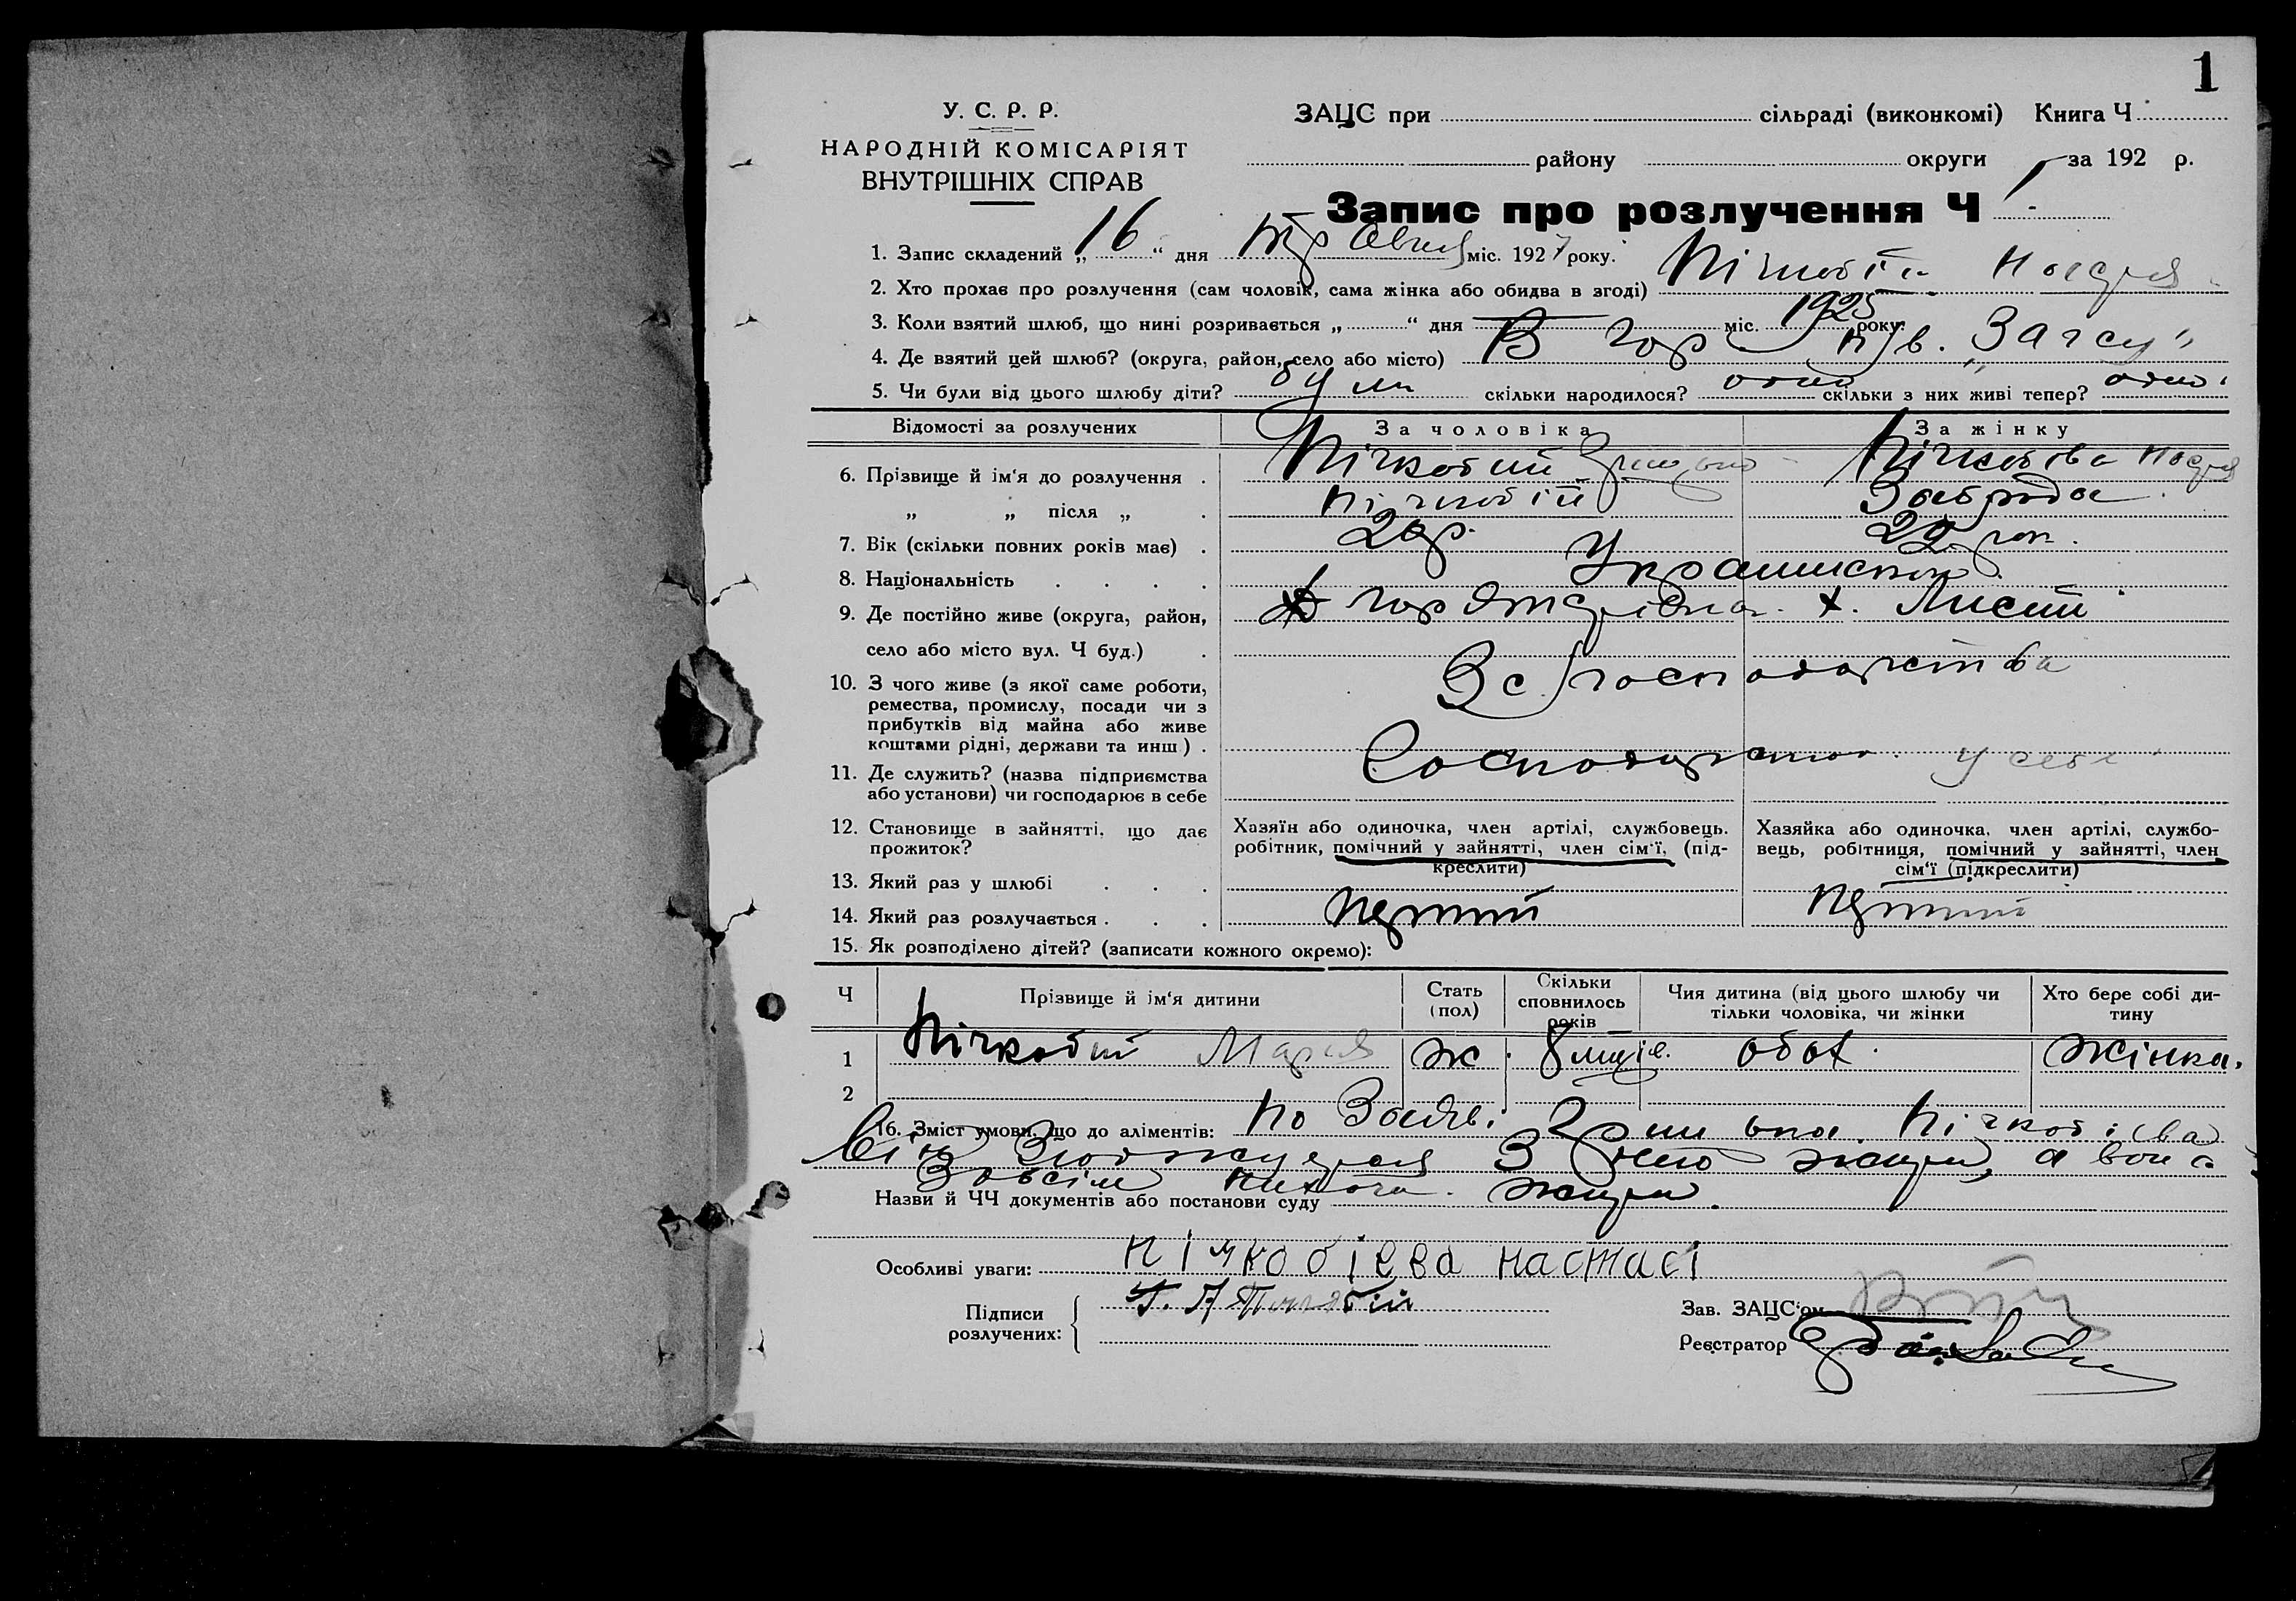 1
У. С. Р. Р.
НАРОДНІЙ КОМІСАРІЯТ
ВНУТРІШНІХ СПРАВ
ЗАЦС при сільраді (виконкомі) Книга Ч
району округи за 192 р.
Запис про розлучення Ч 1.
1. Запис складений „16“ дня Травня міс. 1927 року.
2. Хто прохає про розлучення (сам чоловік, сама жінка або обидва в згоді)
3. Коли взятий шлюб, що нині розривається „ “ дня міс. 1925 року.
4. Де взятий цей шлюб? (округа, район, село або місто) В гор „Загсу“
5. Чи були від цього шлюбу діти? були скільки народилося? одно скільки з них живі тепер? одно.
Відомості за розлучених За чоловіка За жінку
6. Прізвище й ім‘я до розлучення . Пічкобий
„ „ після „ . Пічкобій
7. Вік (скільки повних років має) . 20р. 22 рок.
8. Національність . . . . Украинської.
9. Де постійно живе (округа, район, х. Лисий
село або місто вул. Ч буд.) .
10. З чого живе (з якої саме роботи,
ремества, промислу, посади чи з
прибутків від майна або живе
коштами рідні, держави та инш) .
З с/господарства
11. Де служить? (назва підприємства
або установи) чи господарює в себе
у себе
12. Становище в зайнятті, що дає
прожиток?
Хазяїн або одиночка, член артілі, службовець.
робітник, помічний у зайнятті, член сім‘ї, (під-
креслити)
Хазяйка або одиночка, член артілі, службо-
вець, робітниця, помічний у зайнятті, член
сім‘ї (підкреслити)
13. Який раз у шлюбі . . .
14. Який раз розлучається . . . Первий Первий
15. Як розподілено дітей? (записати кожного окремо):
Ч Прізвище й ім‘я дитини Стать (пол) Скільки сповнилось років Чия дитина (від цього шлюбу чи тільки чоловіка, чи жінки Хто бере собі дитину
1 Пічкобій Мария ж. 8 міс. обох. жінка.
2
16. Зміст умови, що до аліментів: По Заяв.
Він з нею а вона
Зовсім
Назви й ЧЧ документів або постанови суду
Особливі уваги: Пічкобієва настасі
Підписи
розлучених:
Зав. ЗАЦС‘ом
Реєстратор